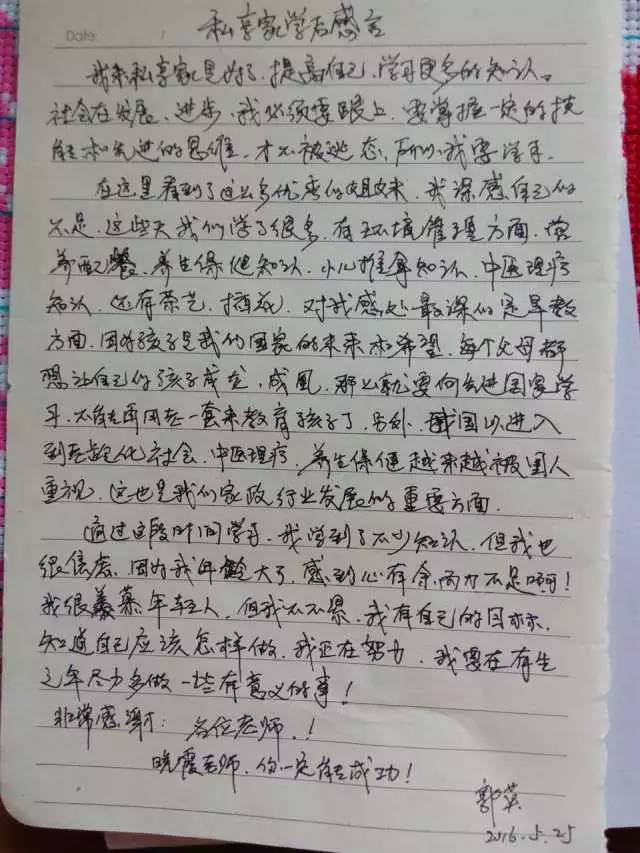 Date: /
私享家学后感言
我来私享家是为了,提高自己,学习更多的知识。
社会在发展、进步,我必须要跟上,要掌握一定的技
能和先进的思维,才不被淘汰,所以,我要学习.
在这里看到了这么多优秀的姐妹,我深感自己的
不足.这些天我们学了很多,有环境管理方面、营
养配餐、养生保健知识、小儿推拿知识、中医理疗
知识、还有茶艺、插花、对我感处最深的是早教
方面,因为孩子是我们国家的未来和希望,每个父母都
想让自己的孩子成龙,成凤,那么就要向先进国家学
习,不能再用老一套来教育孩子了,另外,我国以进入
到老龄化社会,中医理疗、养生保健越来越被国人
重视,这也是我们家政行业发展的重要方面.
通过这段时间学习,我学到了不少知识,但我也
很焦虑,因为我年龄大了,感到心有余而力不足啊!
我很羡慕年轻人,但我从不累,我有自己的目标,
知道自己应该怎样做,我正在努力,我要在有生
之年尽力多做一些有意义的事!
非常感谢:各位老师!
晓霞老师,你一定能成功!
郭英
2016.5.25